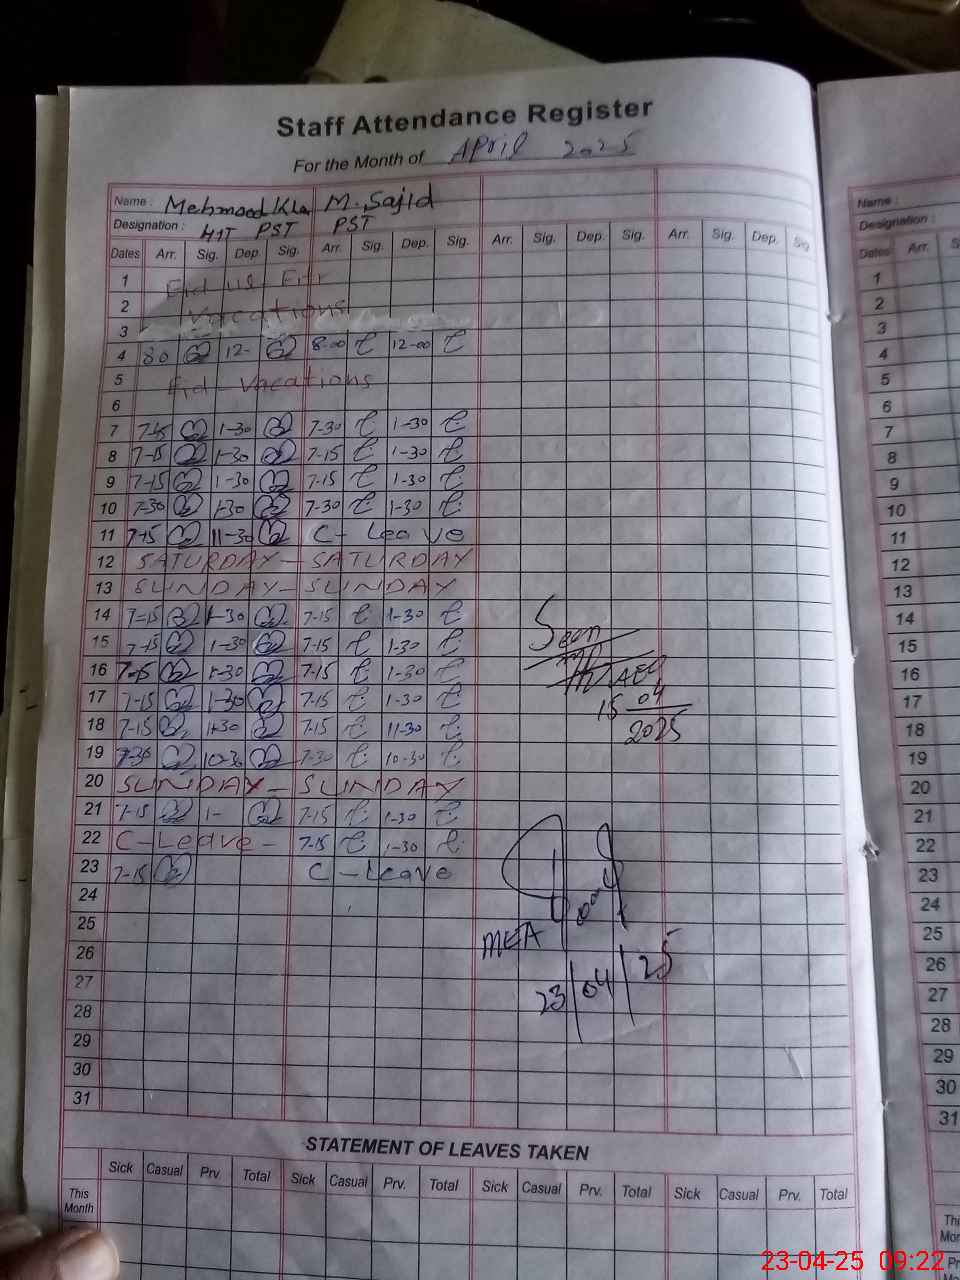 Staff Attendance Register
For the Month of April 2025
Name : Mehmood Kha M. Sajid
Designation : PST PST
Dates Arr. Sig. Dep. Sig. Arr. Sig. Dep. Sig. Arr. Sig. Dep. Sig. Arr. Sig. Dep. Sig
1 Eid us Fitr
2 Vacations
3
4 80 12- 8-00 12-00
5 Eid Vacations
6
7 7-15 1-30 7-30 1-30
8 7-15 1-30 7-15 1-30
9 7-15 1-30 7-15 1-30
10 7-30 1-30 7-30 1-30
11 7-15 11-30 C- Leave
12 SATURDAY - SATURDAY
13 SUNDAY - SUNDAY
14 7-15 1-30 7-15 1-30
15 7-15 1-30 7-15 1-30
16 7-15 1-30 7-15 1-30
17 7-15 1-30 7-15 1-30
18 7-15 11-30 7-15 11-30
19 7-30 10-30 7-30 10-30
20 SUNDAY - SUNDAY
21 7-15 1- 7-15 1-30
22 C-Leave - 7-15 1-30
23 7-15 C-Leave
24
25
26
27
28
29
30
31
Seen
15 04
2025
MEA
23/04/25
STATEMENT OF LEAVES TAKEN
Sick Casual Prv. Total Sick Casual Prv. Total Sick Casual Prv. Total Sick Casual Prv. Total
This Month
Name :
Designation :
Dates Arr. S
1
2
3
4
5
6
7
8
9
10
11
12
13
14
15
16
17
18
19
20
21
22
23
24
25
26
27
28
29
30
31
23-04-25 09:22